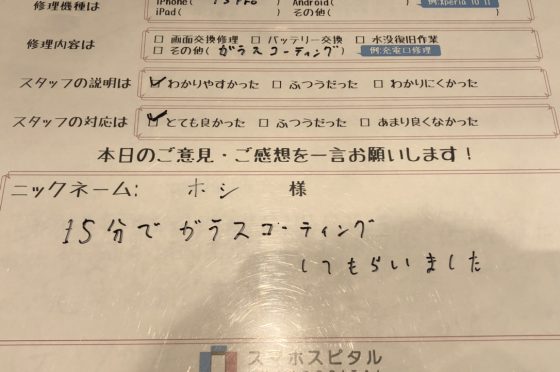 修理機種は iPhone( 15 Pro ) Android( ) 例:Xperia 10 II
iPad( ) その他( )
修理内容は □ 画面交換修理 □ バッテリー交換 □ 水没復旧作業
□ その他( ガラスコーティング ) 例:充電口修理
スタッフの説明は ☑ わかりやすかった □ ふつうだった □ わかりにくかった
スタッフの対応は ☑ とても良かった □ ふつうだった □ あまり良くなかった
本日のご意見・ご感想を一言お願いします!
ニックネーム: ホシ 様
15分でガラスコーティング
してもらいました
スマホスピタル